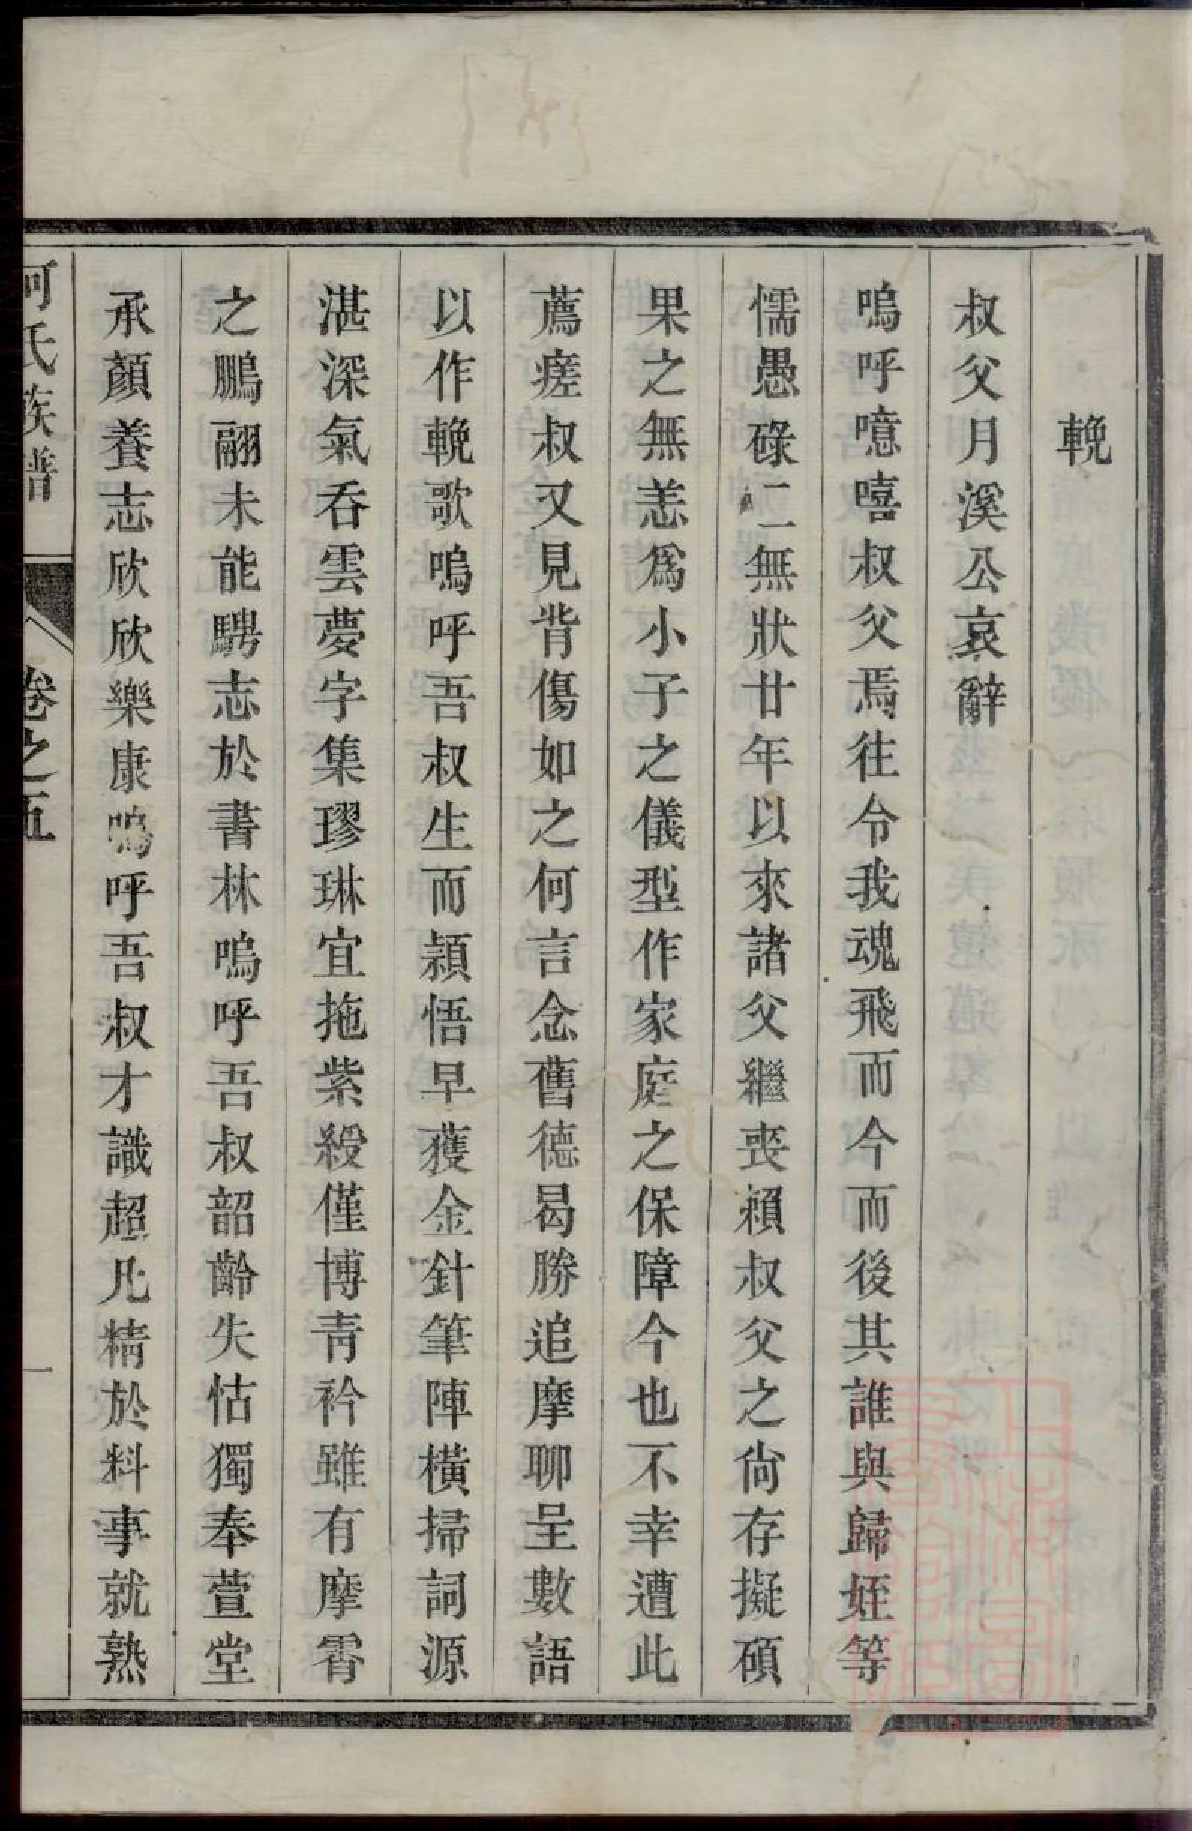 輓
叔父月溪公哀辭
嗚呼噫嘻叔父焉往令我魂飛而今而後其誰與歸姪等
懦愚碌二無狀廿年以來諸父繼喪賴叔父之尙存擬碩
果之無恙爲小子之儀型作家庭之保障今也不幸遭此
薦瘥叔又見背傷如之何言念舊德曷勝追摩聊呈數語
以作輓歌嗚呼吾叔生而穎悟早獲金針筆陣橫掃詞源
湛深氣吞雲夢字集璆琳宜拖紫綬僅博靑衿雖有摩霄
之鵬翮未能騁志於書林嗚呼吾叔韶齡失怙獨奉萱堂
承顏養志欣欣樂康嗚呼吾叔才識超凡精於料事就熟
氏族譜
卷之五
一